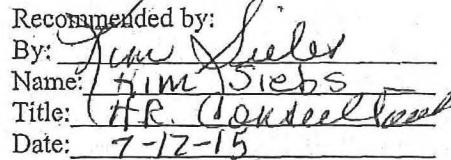 Recommended by:
By: Kim Siebs
Name: Kim Siebs
Title: H.R. Consultant
Date: 7-12-15